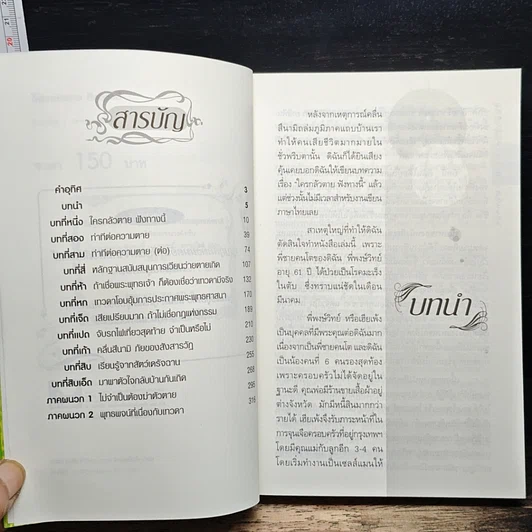 สารบัญ
150 บาท
คำอุทิศ 3
บทนำ 5
บทที่หนึ่ง ใครกลัวตาย ฟังทางนี้ 10
บทที่สอง ท่าทีต่อความตาย 39
บทที่สาม ท่าทีต่อความตาย (ต่อ) 74
บทที่สี่ หลักฐานสนับสนุนการเวียนว่ายตายเกิด
บทที่ห้า ถ้าเชื่อพระพุทธเจ้า ก็ต้องเชื่อว่าเทวดามีจริง 132
บทที่หก เทวดาโอบอุ้มการประกาศพระพุทธศาสนา
บทที่เจ็ด เสียเปรียบมาก ถ้าไม่เชื่อกฎแห่งกรรม
บทที่แปด จับรถไฟเที่ยวสุดท้าย จำเป็นหรือไม่ 230
บทที่เก้า คลื่นสึนามิ ภัยของสังสารวัฏ
บทที่สิบ เรียนรู้จากสัตว์เดรัจฉาน
บทที่สิบเอ็ด มาพาตัวใจกลับบ้านกันเถิด 268
ภาคผนวก 1 ไม่จำเป็นต้องฆ่าตัวตาย 295
ภาคผนวก 2 พุทธพจน์ที่เนื่องกับเทวดา 316
หลังจากเหตุการณ์คลื่น
สึนามิถล่มภูมิภาคแถบบ้านเรา
ทำให้คนเสียชีวิตมากมายใน
ชั่วพริบตานั้น ดิฉันก็ได้ยินเสียง
คุ้นเคยบอกดิฉันให้เขียนบทความ
เรื่อง "ใครกลัวตาย ฟังทางนี้" แล้ว
แต่ช่วงนั้นไม่มีเวลาสำหรับงานเขียน
ภาษาไทยเลย
สาเหตุใหญ่ที่ทำให้ดิฉัน
ตัดสินใจทำหนังสือเล่มนี้ เพราะ
พี่ชายคนโตของดิฉัน พี่พงษ์วิทย์
อายุ 61 ปี ได้ป่วยเป็นโรคมะเร็ง
ในตับ ซึ่งทราบแน่ชัดในเดือน
มีนาคม
พี่พงษ์วิทย์ หรือเฮียเพ้ง
เป็นบุคคลที่มีพระคุณต่อดิฉันมาก
เนื่องจากเป็นพี่ชายคนโต และดิฉัน
เป็นน้องคนที่ 6 คนรองสุดท้อง
เพราะครอบครัวไม่ได้จัดอยู่ใน
ฐานะดี คุณพ่อมีร้านขายเสื้อผ้าอยู่
ต่างจังหวัด มักมีหนี้สินมากกว่า
รายได้ เฮียเพ้งจึงรับภาระหน้าที่ใน
การจุนเจือครอบครัวที่อยู่กรุงเทพฯ
โดยมีคุณแม่กับลูกอีก 3-4 คน
โดยเริ่มทำงานเป็นเซลล์แมนให้
บทนำ